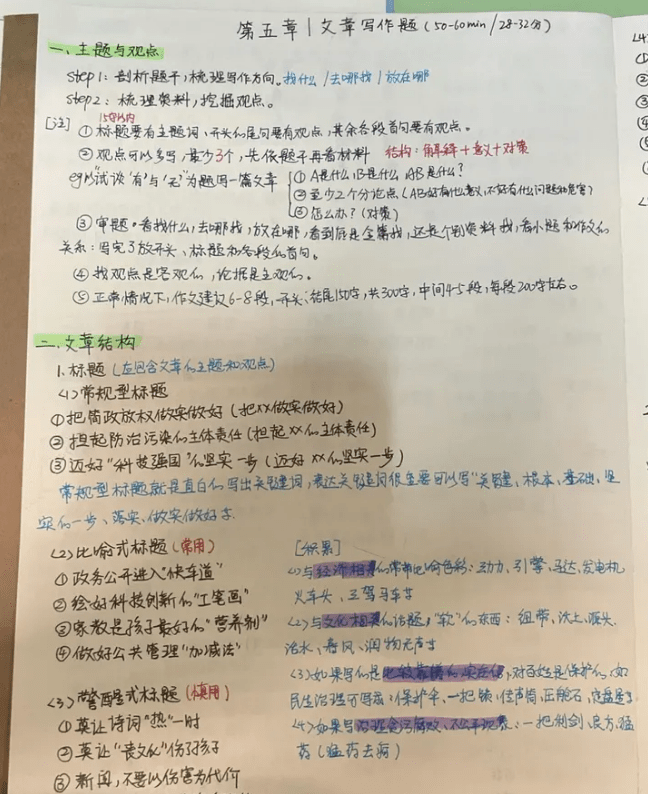 第五章|文章写作题(50-60min/28-32分)
一、主题与观点
step1:剖析题干,梳理写作方向。找什么/去哪找/放在哪
step2:梳理资料,挖掘观点。
15字以内
[注]①标题要有主题词、开头的尾句要有观点,其余各段首句要有观点。
②观点可以多写,最少3个,先依题干再看材料 结构:解释+意义+对策
eg以“试谈‘有’与‘无’”为题写一篇文章
①A是什么,B是什么,AB是什么?
②至少2个分论点(AB好有什么意义,不好有什么问题和危害)
③怎么办?(对策)
③审题。看找什么,去哪找,放在哪,看到底是全篇找,还是个别资料找,看小题和作文的
关系:写完了放开头、标题和各段的首句。
④找观点是客观的,论据是主观的。
⑤正常情况下,作文建议6-8段,开头、结尾150字,共300字,中间4-5段,每段200字左右。
二、文章结构
1.标题(应包含文章的主题和观点)
(1)常规型标题
①把简政放权做实做好(把XX做实做好)
②担起防治污染的主体责任(担起XX的主体责任)
③迈好“科技强国”的坚实一步(迈好XX的坚实一步)
常规型标题就是直白的写出关键词,表达关键词很重要可以写“关键、根本、基础、坚
实的一步、落实、做实做好”字
(2)比喻式标题(常用)
①政务公开进入“快车道”
②绘好科技创新的“工笔画”
③家教是孩子最好的“营养剂”
④做好公共管理“加减法”
(3)警醒式标题(慎用)
①莫让诗词“热”一时
②莫让“丧文化”伤了孩子
③新闻,不要以伤害为代价
[积累]
(1)与经济相关的常带比喻色彩:动力、引擎、马达、发电机
火车头、三驾马车等
(2)与文化相关的话题,“软”的东西:纽带、沃土、源头
活水、春风、润物无声等
(3)如果写的是比较靠谱的实在的,对百姓是保护的,如
民生治理可写成:保护伞、一把锁、传声筒、压舱石、定盘星等
(4)如果写治理贪污腐败、不公平现象:一把利剑、良方、猛
药(猛药去疴)